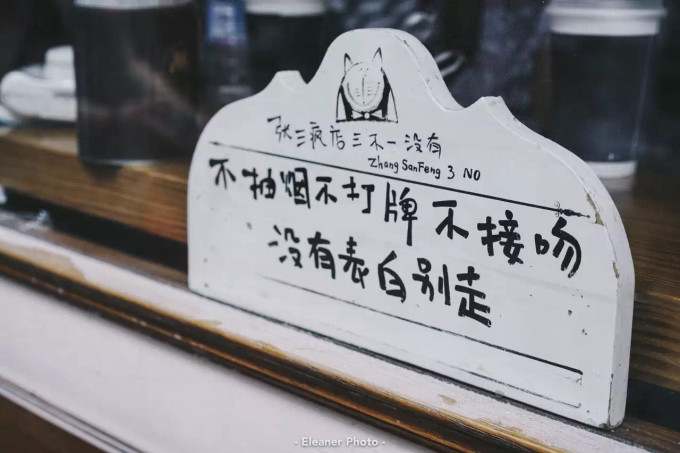 张三疯店三不一没有
Zhang SanFeng 3 NO
不抽烟不打牌不接吻
没有表白别走
- Eleaner Photo -